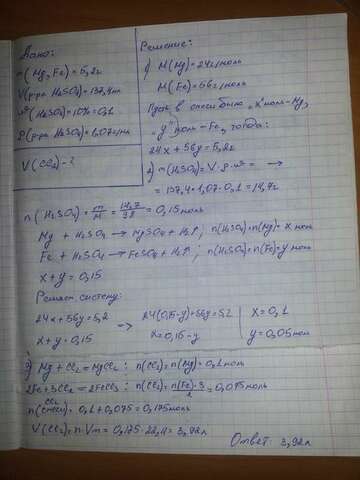 Дано:
m(Mg,Fe) = 5,2г
V(р-ра H₂SO₄) = 137,4мл
ω(H₂SO₄) = 10% = 0,1
ρ(р-ра H₂SO₄) = 1,07г/мл
V(Cl₂) - ?
Решение:
1) M(Mg) = 24г/моль
M(Fe) = 56г/моль
в смеси было "x" моль - Mg,
"y" моль - Fe, тогда:
24x + 56y = 5,2г
2) m(H₂SO₄) = V·ρ·ω = →
= 137,4·1,07·0,1 = 14,7г
n(H₂SO₄) = m/M = 14,7/98 = 0,15 моль
Mg + H₂SO₄ → MgSO₄ + H₂↑; n(H₂SO₄) = n(Mg) = x моль
Fe + H₂SO₄ → FeSO₄ + H₂↑; n(H₂SO₄) = n(Fe) = y моль
x + y = 0,15
Решаем систему:
24x + 56y = 5,2 → 24(0,15-y) + 56y = 5,2 | x = 0,1
x + y = 0,15 x = 0,15 - y | y = 0,05 моль
3) Mg + Cl₂ = MgCl₂; n(Cl₂) = n(Mg) = 0,1 моль
2Fe + 3Cl₂ = 2FeCl₃; n(Cl₂) = n(Fe)·3/2 = 0,075 моль
n(Cl₂) = 0,1 + 0,075 = 0,175 моль
V(Cl₂) = n·Vm = 0,175·22,4 = 3,92л
Ответ: 3,92л